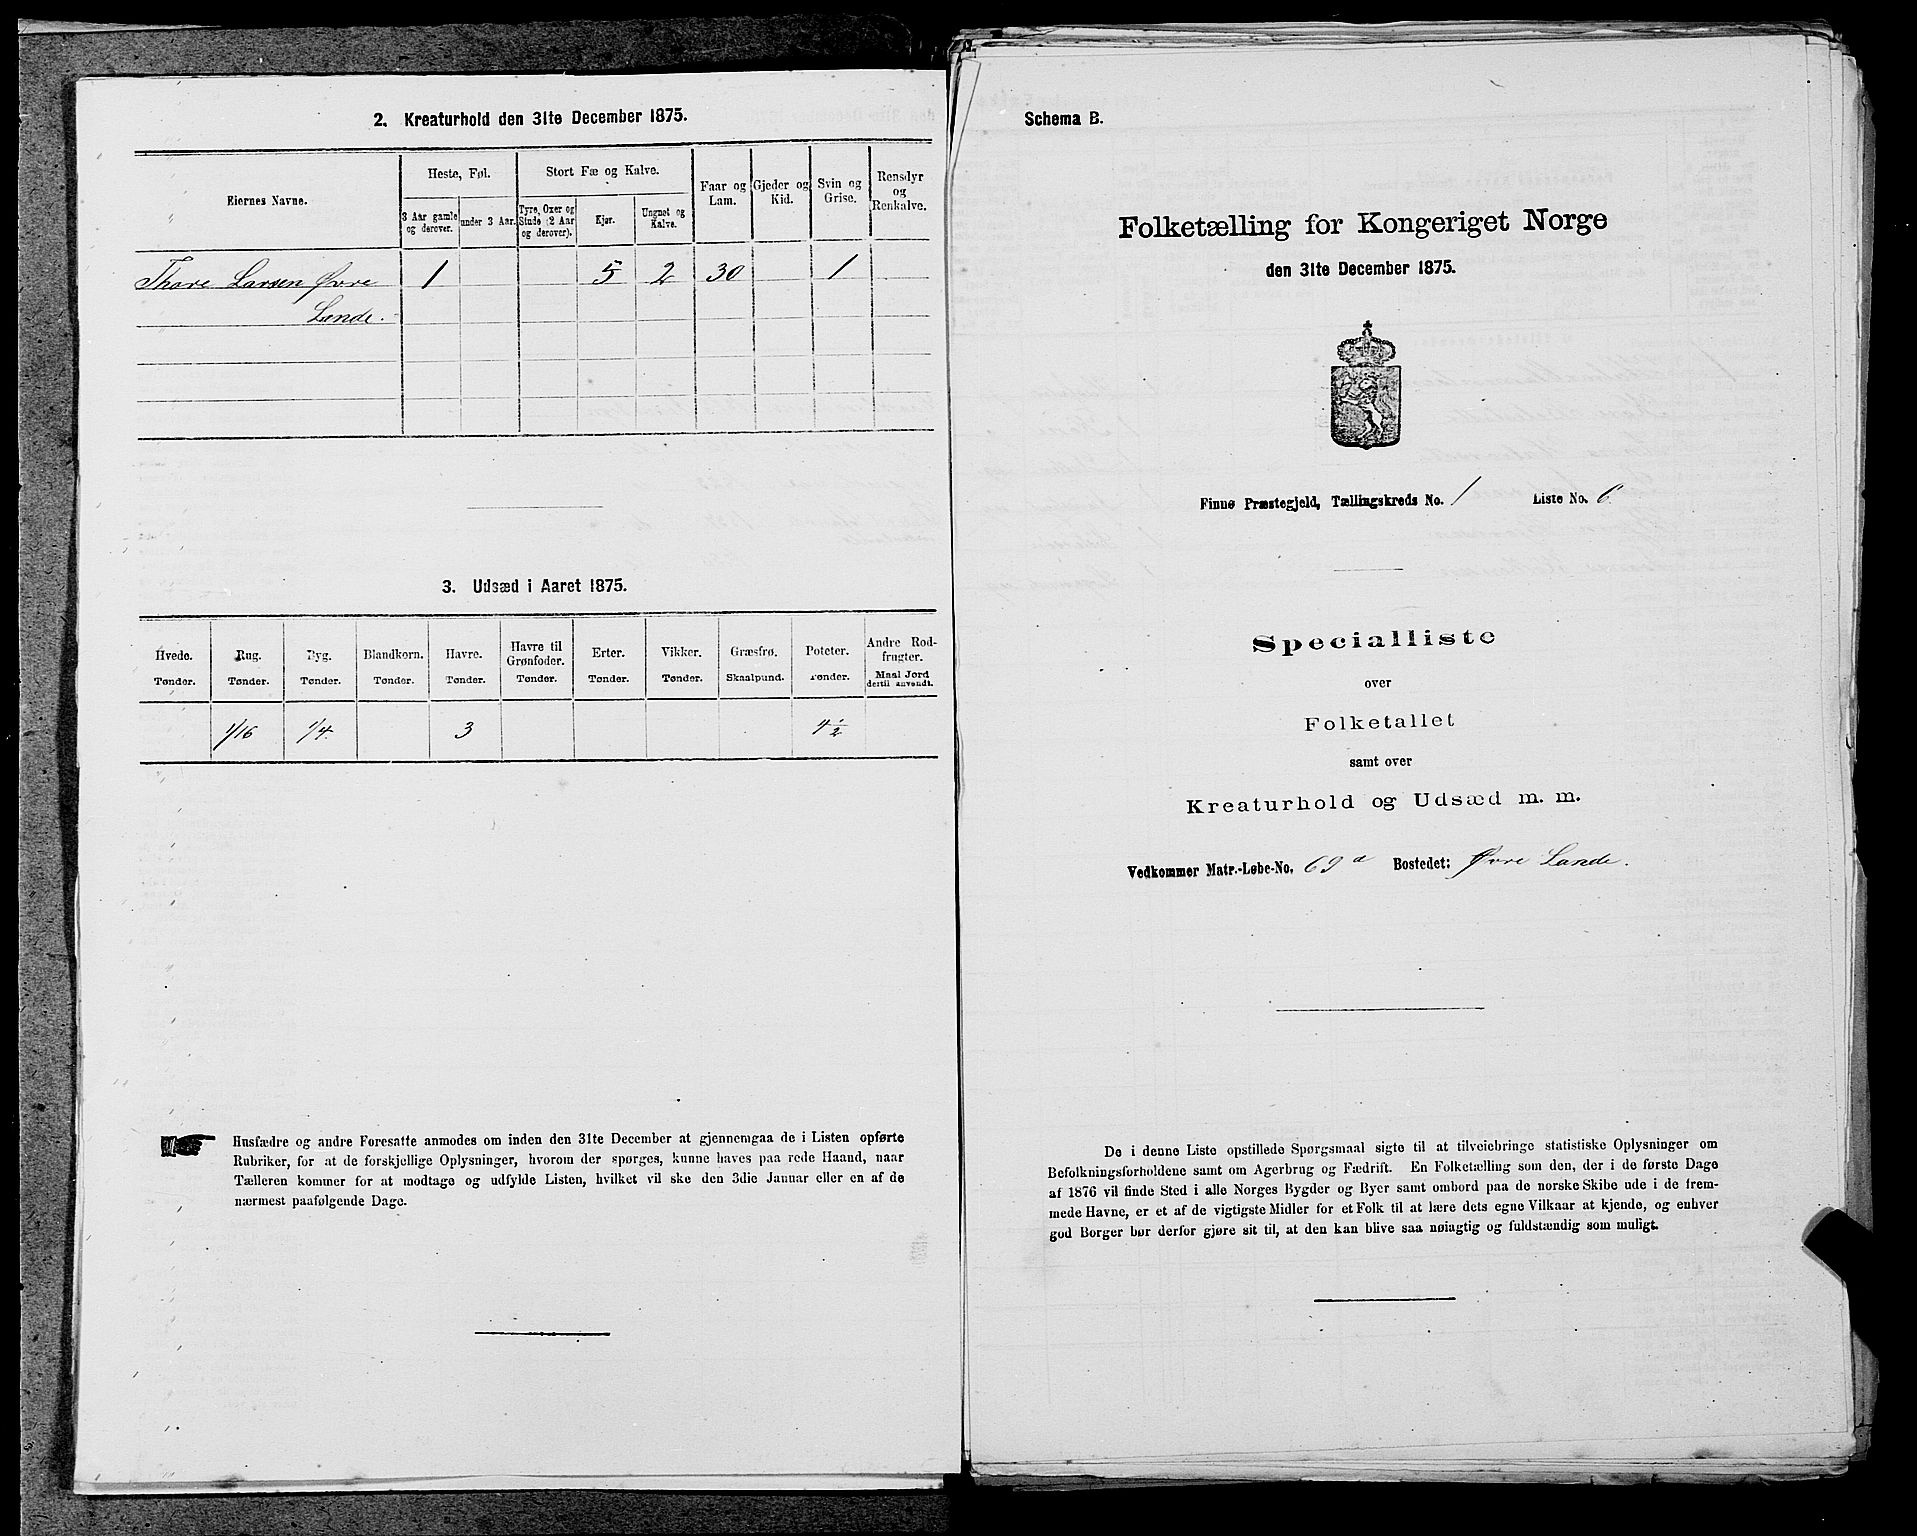 2. Kreaturhold den 31te December 1875.
Eiernes Navne.
Heste, Føl.
3 Aar gamle og derover.
under 3 Aar.
Stort Fæ og Kalve.
Tyre, Oxer og Stude (2 Aar og derover).
Kjør.
Ungnet og Kalve.
Faar og Lam.
Gjeder og Kid.
Svin og Grise.
Rensdyr og Renkalve.
Thore Larsen Øvre 1 5 2 30 1
Lande.
3. Udsæd i Aaret 1875.
Hvede. Rug. Byg. Blandkorn. Havre. Havre til Grønfoder. Erter. Vikker. Græsfrø. Poteter. Andre Rodfrugter.
Tønder. Tønder. Tønder. Tønder. Tønder. Tønder. Tønder. Tønder. Skaalpund. Tønder. Maal Jord dertil anvendt.
1/16 1/4 3 4 1/2
Husfædre og andre Foresatte anmodes om inden den 31te December at gjennemgaa de i Listen opførte
Rubriker, for at de forskjellige Oplysninger, hvorom der spørges, kunne haves paa rede Haand, naar
Tælleren kommer for at modtage og udfylde Listen, hvilket vil ske den 3die Januar eller en af de
nærmest paafølgende Dage.
Schema B.
Folketælling for Kongeriget Norge
den 31te December 1875.
Finnø Præstegjeld, Tællingskreds No. 1 Liste No. 6
Specialliste
over
Folketallet
samt over
Kreaturhold og Udsæd m. m.
Vedkommer Matr.-Løbe-No. 69a Bostedet: Øvre Lande.
De i denne Liste opstillede Spørgsmaal sigte til at tilveiebringe statistiske Oplysninger om
Befolkningsforholdene samt om Agerbrug og Fædrift. En Folketælling som den, der i de første Dage
af 1876 vil finde Sted i alle Norges Bygder og Byer samt ombord paa de norske Skibe ude i de frem-
mede Havne, er et af de vigtigste Midler for et Folk til at lære dets egne Vilkaar at kjende, og enhver
god Borger bør derfor gjøre sit til, at den kan blive saa nøiagtig og fuldstændig som muligt.